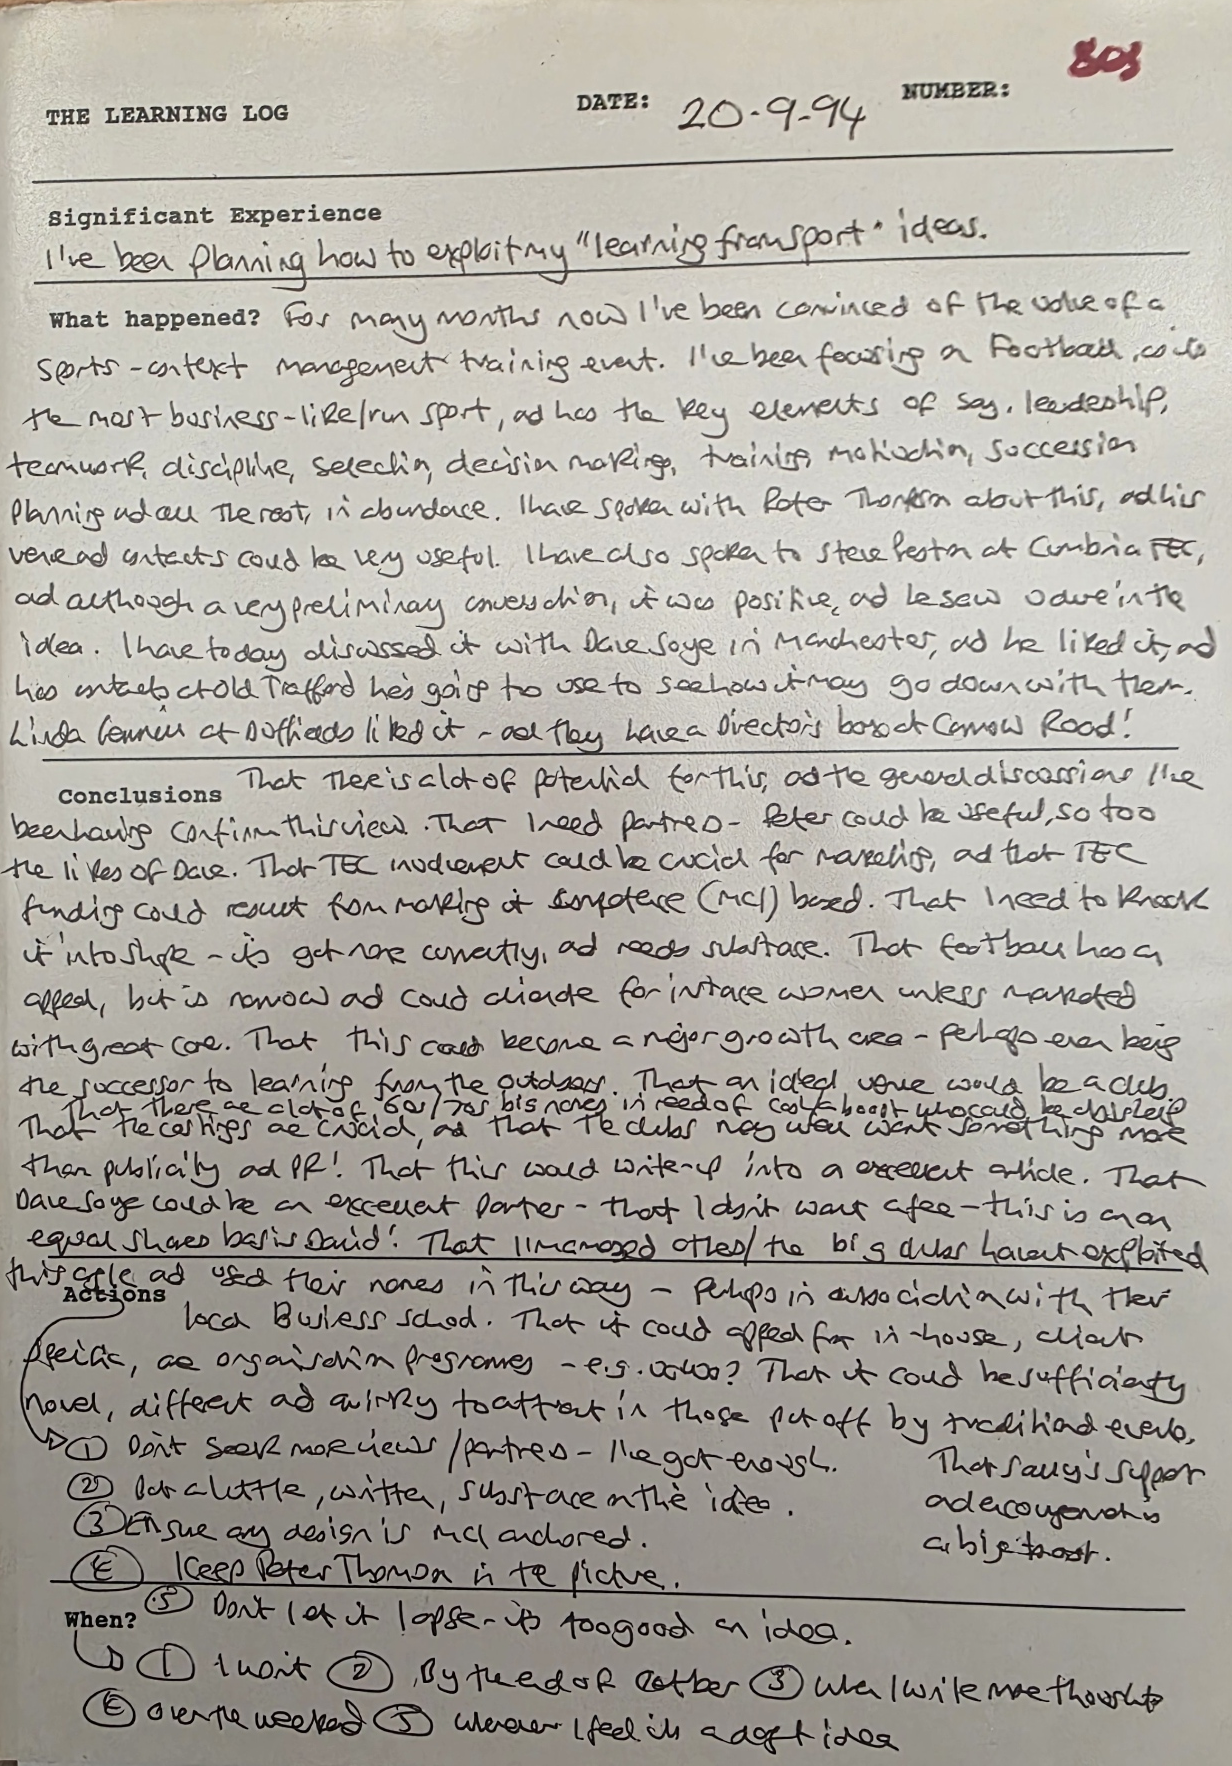 803
THE LEARNING LOG DATE: 20-9-94 NUMBER:
Significant Experience
I've been planning how to exploit my "learning from sport" ideas.
What happened? For many months now I've been convinced of the value of a
sports-context management training event. I've been focusing on Football, as it's
the most business-like/run sport, and has the key elements of say, leadership,
teamwork, discipline, selection, decision making, training, motivation, succession
planning and all the rest, in abundance. I have spoken with Peter Thomson about this, and his
venue and contacts could be very useful. I have also spoken to Steve Peston at Cumbria TEC,
and although a very preliminary conversation, it was positive, and he saw value in the
idea. I have today discussed it with Dave Soye in Manchester, and he liked it, and
has contacts at Old Trafford he's going to use to see how it may go down with them.
Linda at Duffields liked it - and they have a Director's box at Carrow Road!
Conclusions That there is a lot of potential for this, and the general discussions I've
been having confirm this view. That I need partners - Peter could be useful, so too
the likes of Dave. That TEC involvement could be crucial for marketing, and that TEC
funding could result from making it competence (MCI) based. That I need to knock
it into shape - it's got none currently, and needs substance. That football has an
appeal, but is narrow and could alienate for instance women unless marketed
with great care. That this could become a major growth area - perhaps even being
the successor to learning from the outdoors. That an ideal venue would be a club.
That there are a lot of 60s/70s big names in need of cash/a boost who could be
That the costings are crucial, and that the clubs may well want something more
than publicity and PR! That this would write-up into an excellent article. That
Dave Soye could be an excellent partner - that I don't want a fee - this is on an
equal shares basis David! That I'm amazed others/the big clubs haven't exploited
this angle and used their names in this way - perhaps in association with their
Actions local Business School. That it could appeal for in-house, client
specific, organisation programmes - e.g. Volvo? That it could be sufficiently
novel, different and quirky to attract in those put off by traditional events.
① Don't seek more views/partners - I've got enough. That Sally's support
② Put a little, written, substance on the idea. and encouragement is
③ Ensure any design is MCI anchored. a big boost.
④ Keep Peter Thomson in the picture.
⑤ Don't let it lapse - it's too good an idea.
When?
① I won't ② By the end of October ③ When I write more thoughts
④ Over the weekend ⑤ Whenever I feel it's a daft idea